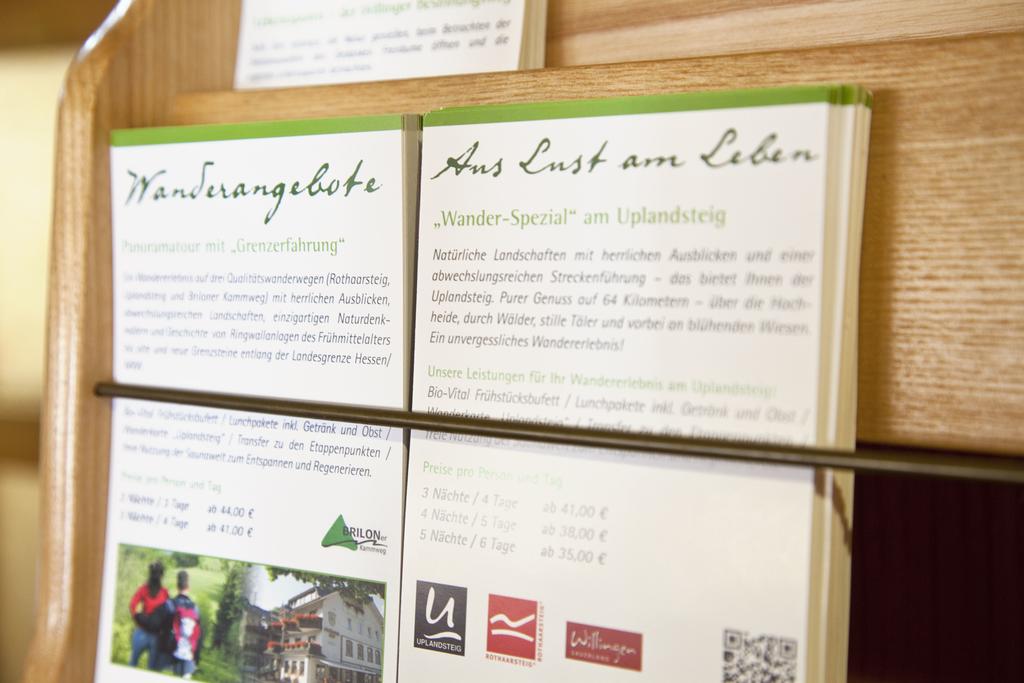 Wanderangebote
Panoramatour mit „Grenzerfahrung“
Ein Wandererlebnis auf drei Qualitätswanderwegen (Rothaarsteig,
Uplandsteig und Briloner Kammweg) mit herrlichen Ausblicken,
abwechslungsreichen Landschaften, einzigartigen Naturdenk-
mälern und Geschichte von Ringwallanlagen des Frühmittelalters
bis alte und neue Grenzsteine entlang der Landesgrenze Hessen/
NRW
Bio-Vital Frühstücksbufett / Lunchpakete inkl. Getränk und Obst /
Wanderkarte „Uplandsteig“ / Transfer zu den Etappenpunkten /
freie Nutzung der Saunawelt zum Entspannen und Regenerieren.
Preise pro Person und Tag
2 Nächte / 3 Tage ab 44,00 €
3 Nächte / 4 Tage ab 41,00 €
BRILONer
Kammweg
Aus Lust am Leben
„Wander-Spezial“ am Uplandsteig
Natürliche Landschaften mit herrlichen Ausblicken und einer
abwechslungsreichen Streckenführung – das bietet Ihnen der
Uplandsteig. Purer Genuss auf 64 Kilometern – über die Hoch-
heide, durch Wälder, stille Täler und vorbei an blühenden Wiesen.
Ein unvergessliches Wandererlebnis!
Unsere Leistungen für Ihr Wandererlebnis am Uplandsteig:
Bio-Vital Frühstücksbufett / Lunchpakete inkl. Getränk und Obst /
Wanderkarte „Uplandsteig“ / Transfer zu den Etappenpunkten /
freie Nutzung der
Preise pro Person und Tag
3 Nächte / 4 Tage ab 41,00 €
4 Nächte / 5 Tage ab 38,00 €
5 Nächte / 6 Tage ab 35,00 €
U
UPLANDSTEIG
ROTHAARSTEIG
ROTHAARSTEIG
Willingen
SAUERLAND